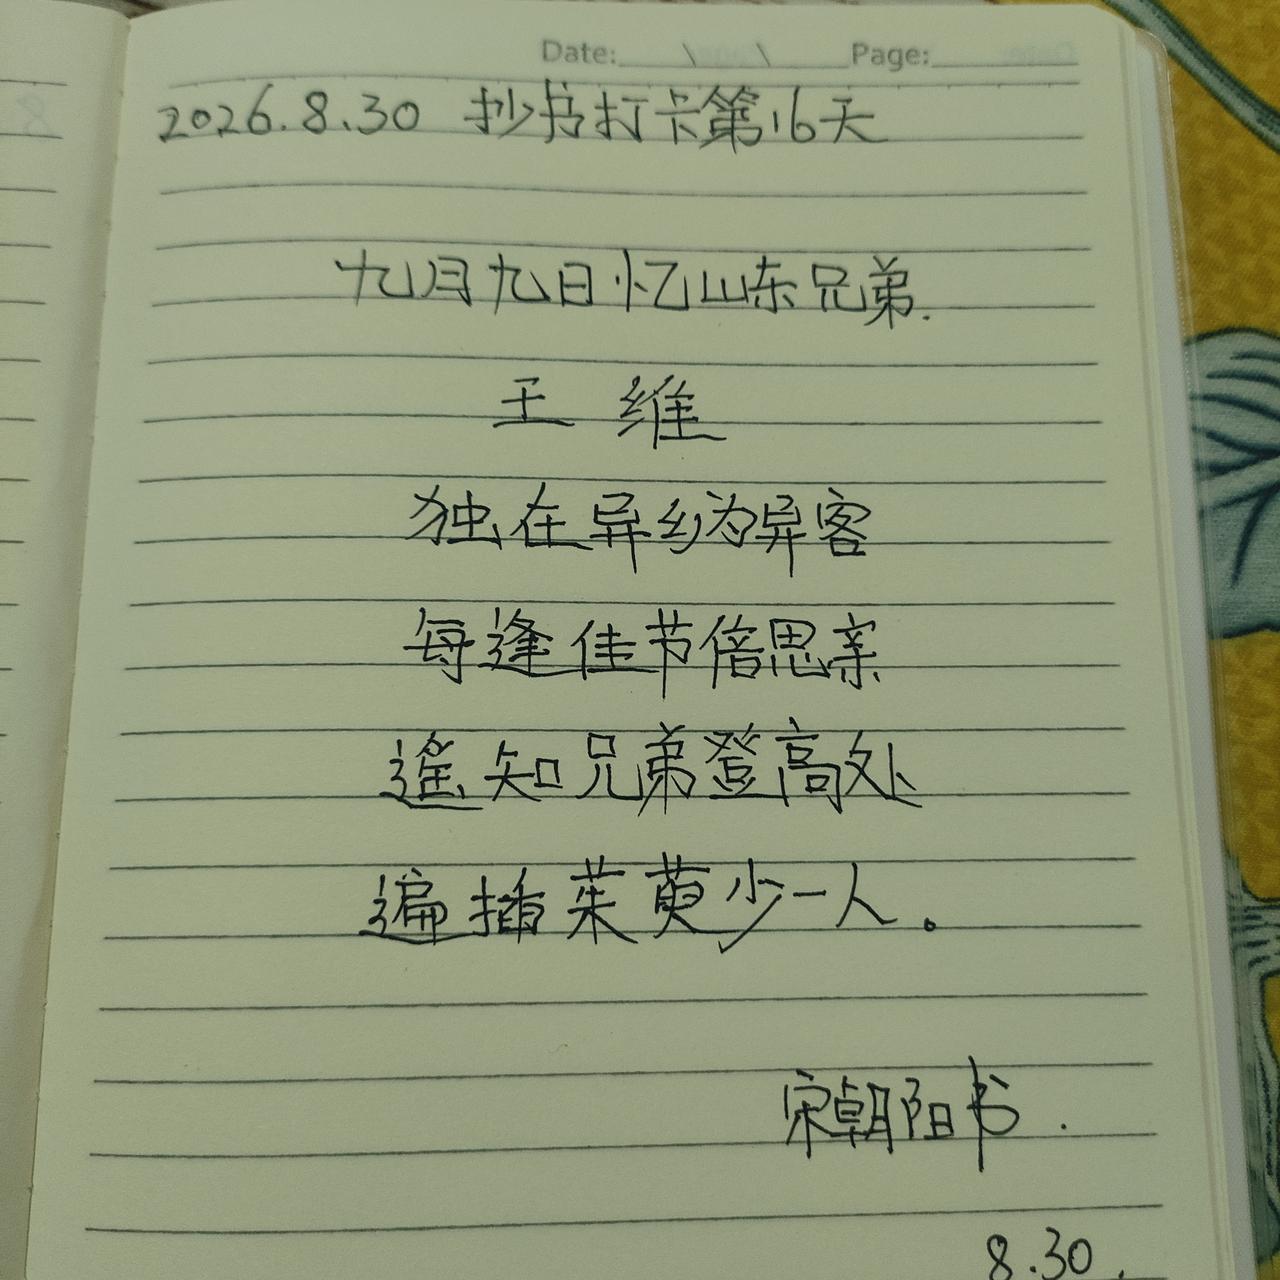 Date: \ \ Page:
2026.8.30 抄书打卡第16天
九月九日忆山东兄弟.
王 维
独在异乡为异客
每逢佳节倍思亲
遥知兄弟登高处
遍插茱萸少一人。
宋朝阳书.
8.30.